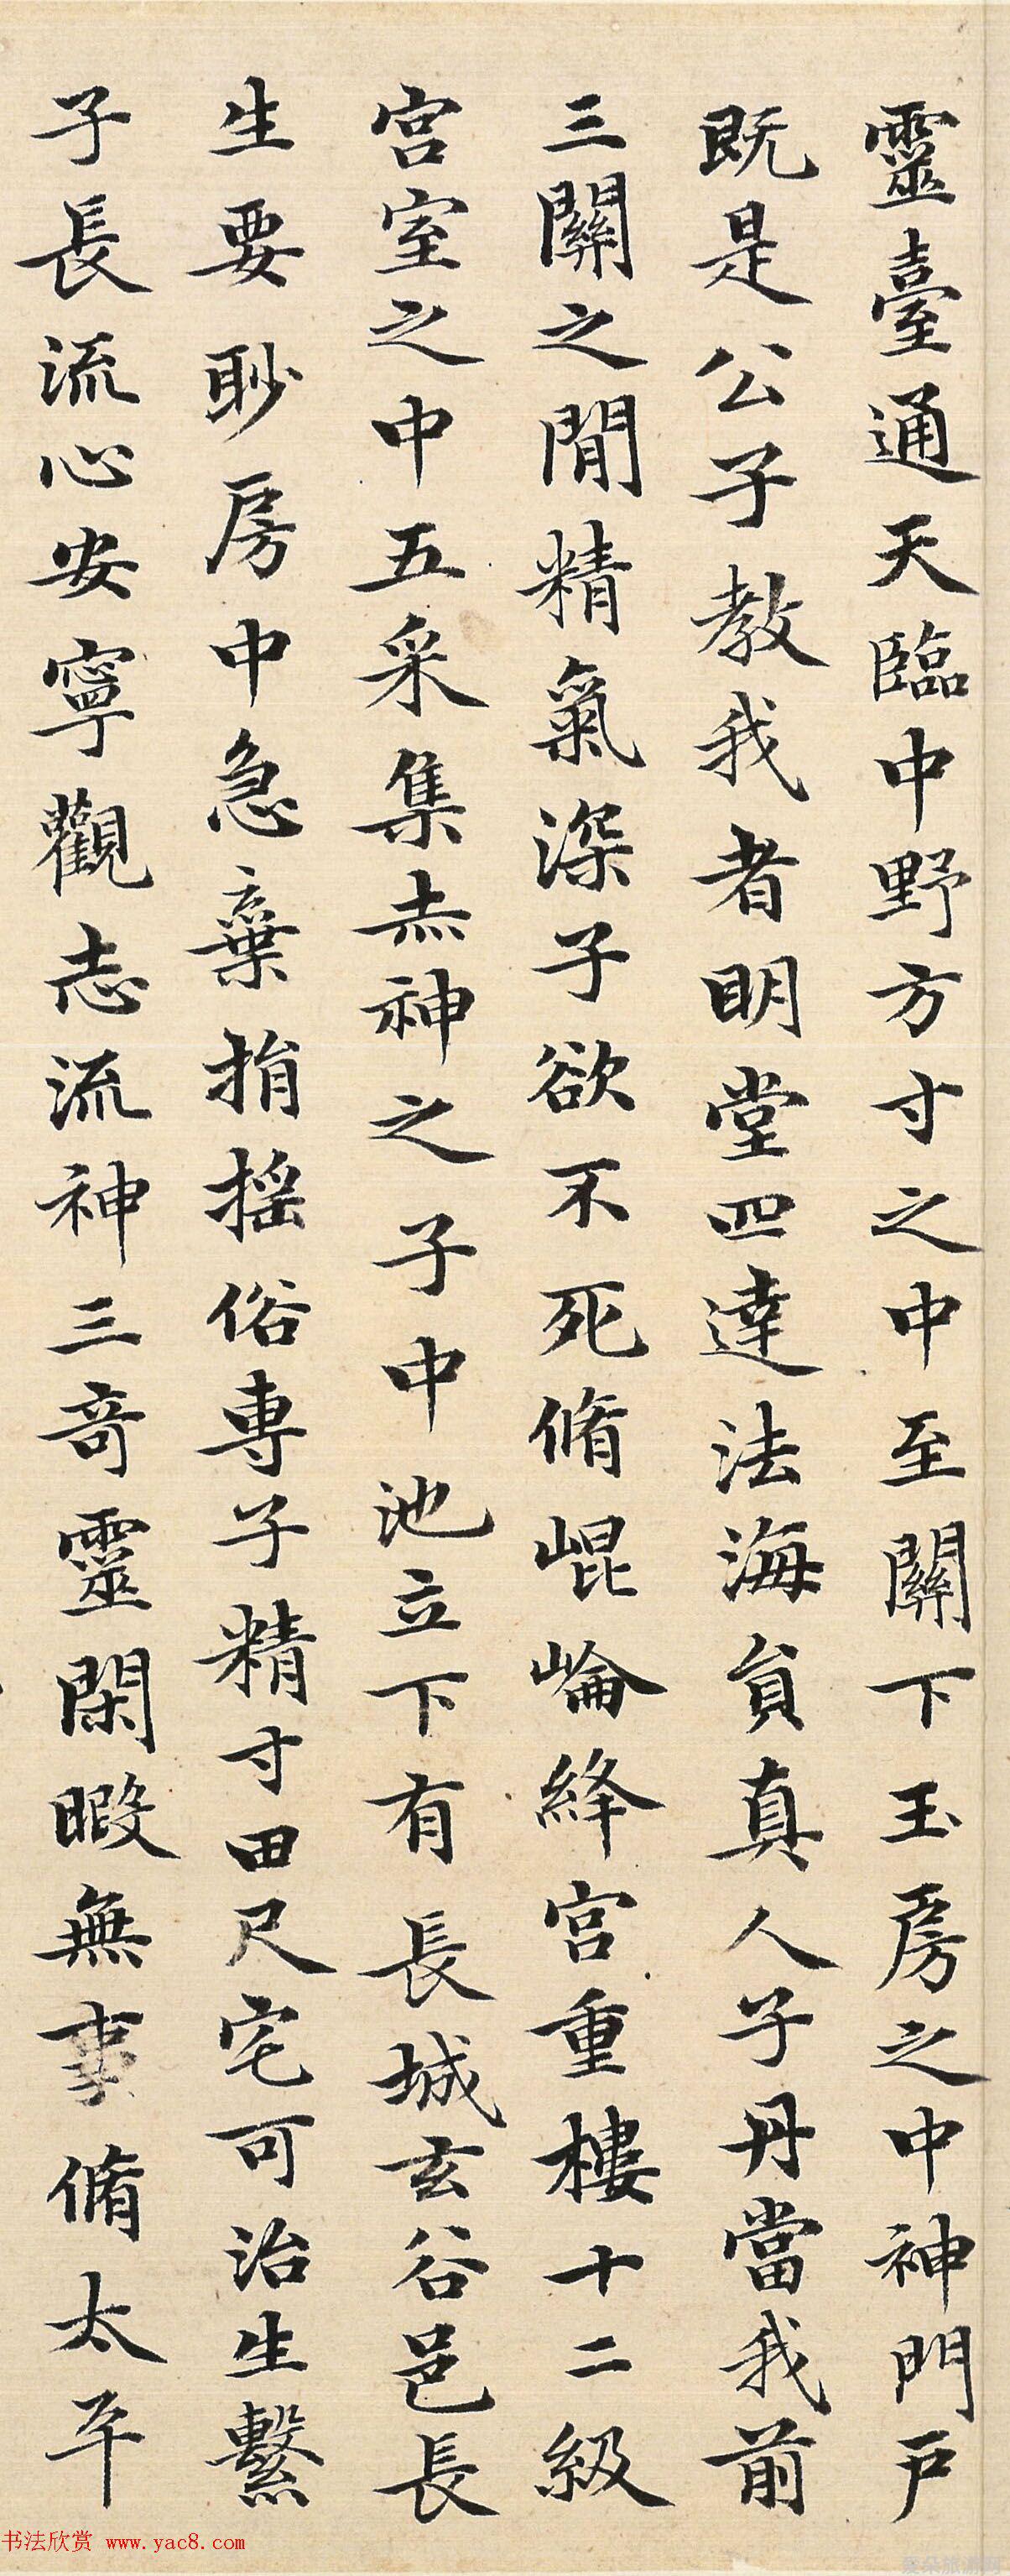 靈臺通天臨中野方寸之中至關下玉房之中神門戶
既是公子教我者明堂四達法海員真人子丹當我前
三關之間精氣深子欲不死脩崐崘絳宮重樓十二級
宮室之中五采集赤神之子中池立下有長城玄谷邑長
生要眇房中急棄捐揺俗專子精寸田尺宅可治生繫
子長流心安寧觀志流神三奇靈閑暇無事脩太平
书法欣赏 www.yac8.com